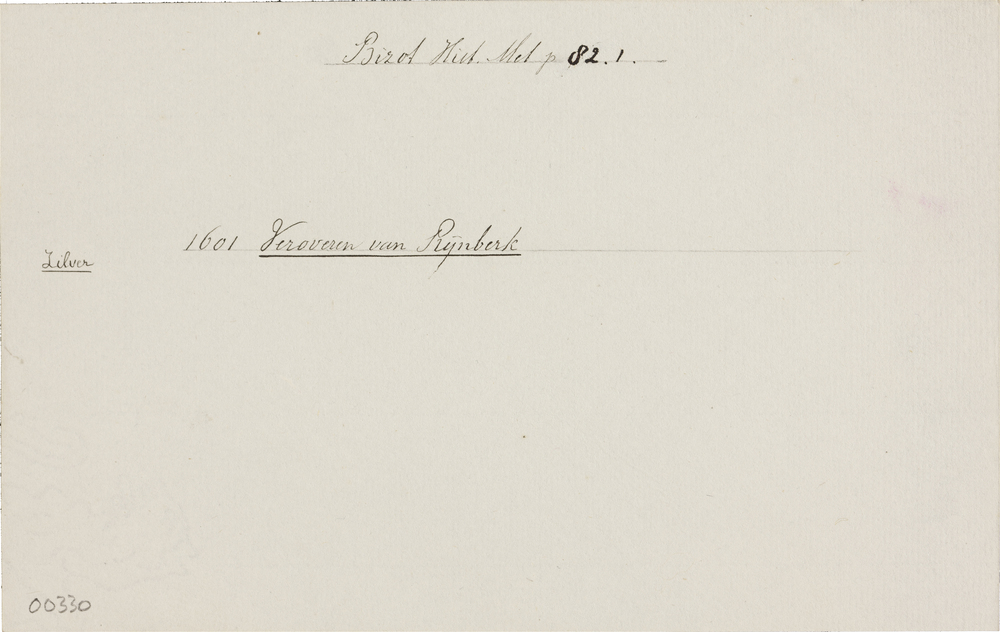 Bizot Hist. Met p 82.1.
1601 Veroveren van Rijnberk
Zilver
00330